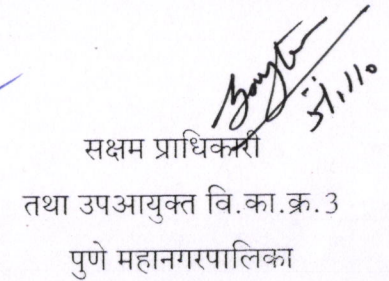 5/1/10
सक्षम प्राधिकारी
तथा उपआयुक्त वि.का.क्र.3
पुणे महानगरपालिका